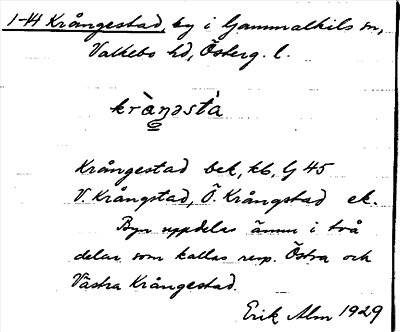 1-14 Krångestad, by i Gammalkils sn,
Valkebo hd, Österg. l.
kràŋəstá
Krångestad bek, kb, G 45
V. Krångstad, Ö. Krångstad ek.
Byn uppdelas ännu i två
delar som kallas resp. Östra och
Västra Krångestad.
Erik Alm 1929